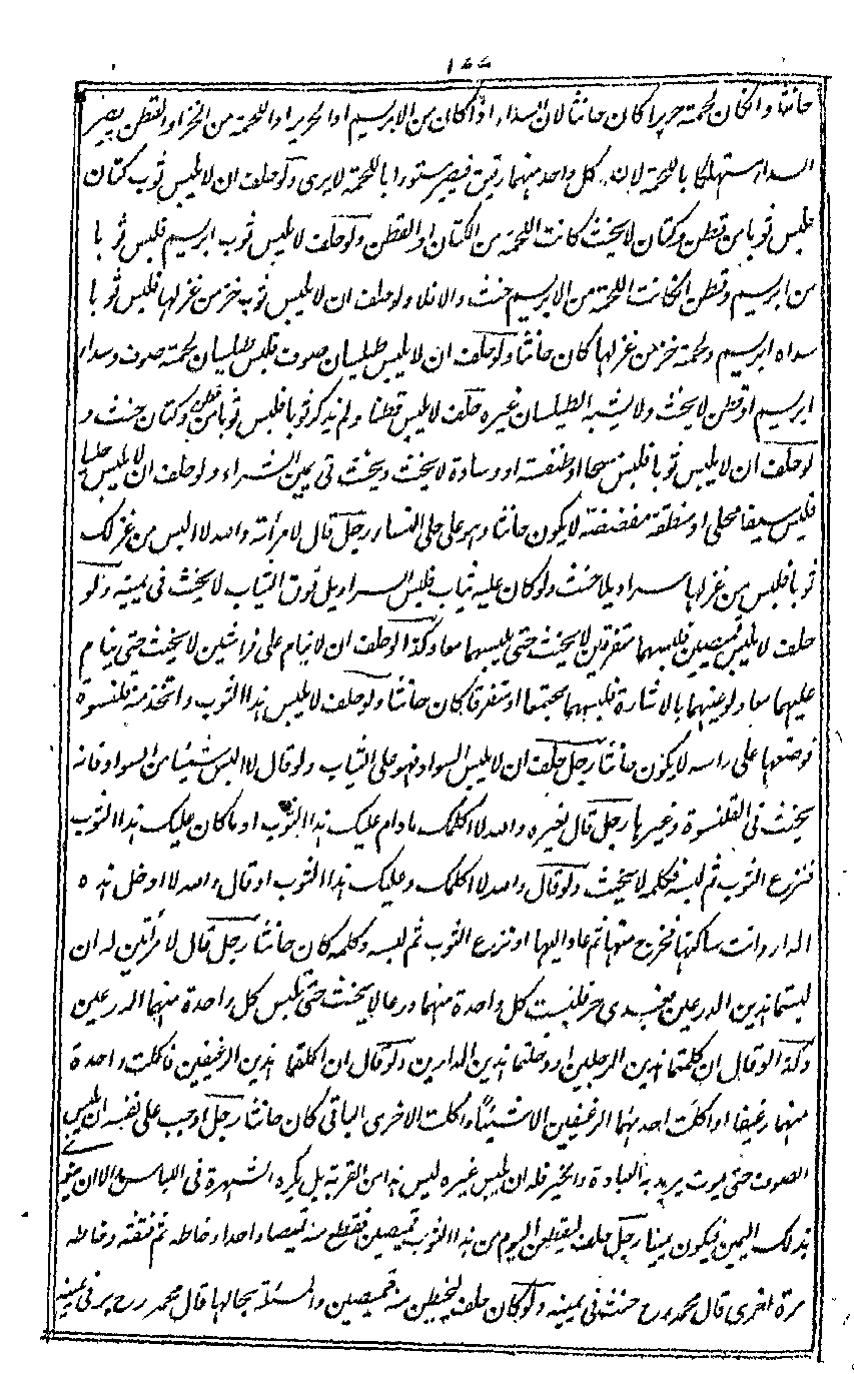 ١٧٧
حانثا وان كان لحمته حريرا كان حانثا لان السداء اذا كان من الابريسم او الحرير او اللحمة من الخز او القطن يصير
السداء مستهلكا باللحمة لان كل واحد منهما رقيق فيصير مستورا باللحمة لا يرى ولو حلف ان لا يلبس ثوب كتان
فلبس ثوبا من قطن وكتان لا يحنث كانت اللحمة من الكتان او القطن ولو حلف لا يلبس ثوب ابريسم فلبس ثوبا
من ابريسم وقطن ان كانت اللحمة من الابريسم حنث والا فلا ولو حلف ان لا يلبس ثوب خز من غزلها فلبس ثوبا
سداه ابريسم ولحمته خز من غزلها كان حانثا ولو حلف ان لا يلبس طيلسان صوف فلبس طيلسان لحمته صوف وسداه
ابريسم او قطن لا يحنث ولا يشبه الطيلسان غيره حلف لا يلبس قطنا ولم يذكر ثوبا فلبس ثوبا من قطن وكتان حنث و
لو حلف ان لا يلبس ثوبا فلبس مسحا او طنفسة او وسادة لا يحنث ويحنث في يمين الشراء ولو حلف ان لا يلبس حليا
فلبس سيفا محلى او منطقة مفضضة لا يكون حانثا وهو على حلي النساء رجل قال لامرأته والله لا البس من غزلك
ثوبا فلبس من غزلها سراويلا حنث ولو كان عليه ثياب فلبس السراويل فوق الثياب لا يحنث في يمينه ولو
حلف لا يلبس قميصين فلبسهما متفرقين لا يحنث حتى يلبسهما معا وكذا لو حلف ان لا ينام على فراشين لا يحنث حتى ينام
عليهما معا ولو عينهما بالاشارة فلبسهما مجتمعا او متفرقا كان حانثا ولو حلف لا يلبس هذا الثوب واتخذ منه قلنسوة
فوضعها على راسه لا يكون حانثا رجل حلف ان لا يلبس السواد فهو على الثياب ولو قال لا البس شيئا من السواد فانه
يحنث في القلنسوة وغيرها رجل قال لغيره والله لا اكلمك ما دام عليك هذا الثوب او ما كان عليك هذا الثوب
فنزع الثوب ثم لبسه فكلمه لا يحنث ولو قال والله لا اكلمك وعليك هذا الثوب او قال والله لا ادخل هذه
الدار وانت ساكنها فخرج منها ثم عاد اليها او نزع الثوب ثم لبسه وكلمه كان حانثا رجل قال لامرأتين له ان
لبستما هذين الدرعين فعبدي حر فلبست كل واحدة منهما درعا لا يحنث حتى تلبس كل واحدة منهما الدرعين
وكذا لو قال ان كلمتما هذين الرجلين او دخلتما هذين الدارين ولو قال ان اكلتما هذين الرغيفين فاكلت واحدة
منهما رغيفا او اكلت احديهما الرغيفين الا شيئا واكلت الاخرى الباقي كان حانثا رجل اوجب على نفسه ان يلبس
الصوف حتى يموت يريد به العبادة والخير فله ان يلبس غيره ليس هذا من القربة بل يكره الشهرة في اللباس الا ان ينوي
بذلك اليمين فيكون يمينا رجل حلف ليقطعن اليوم من هذا الثوب قميصين فقطع منه قميصا واحدا وخاطه ثم فتقه وخاطه
مرة اخرى قال محمد رح حنث في يمينه ولو كان حلف ليخيطن منه قميصين والمسئلة بحالها قال محمد رح بر في يمينه